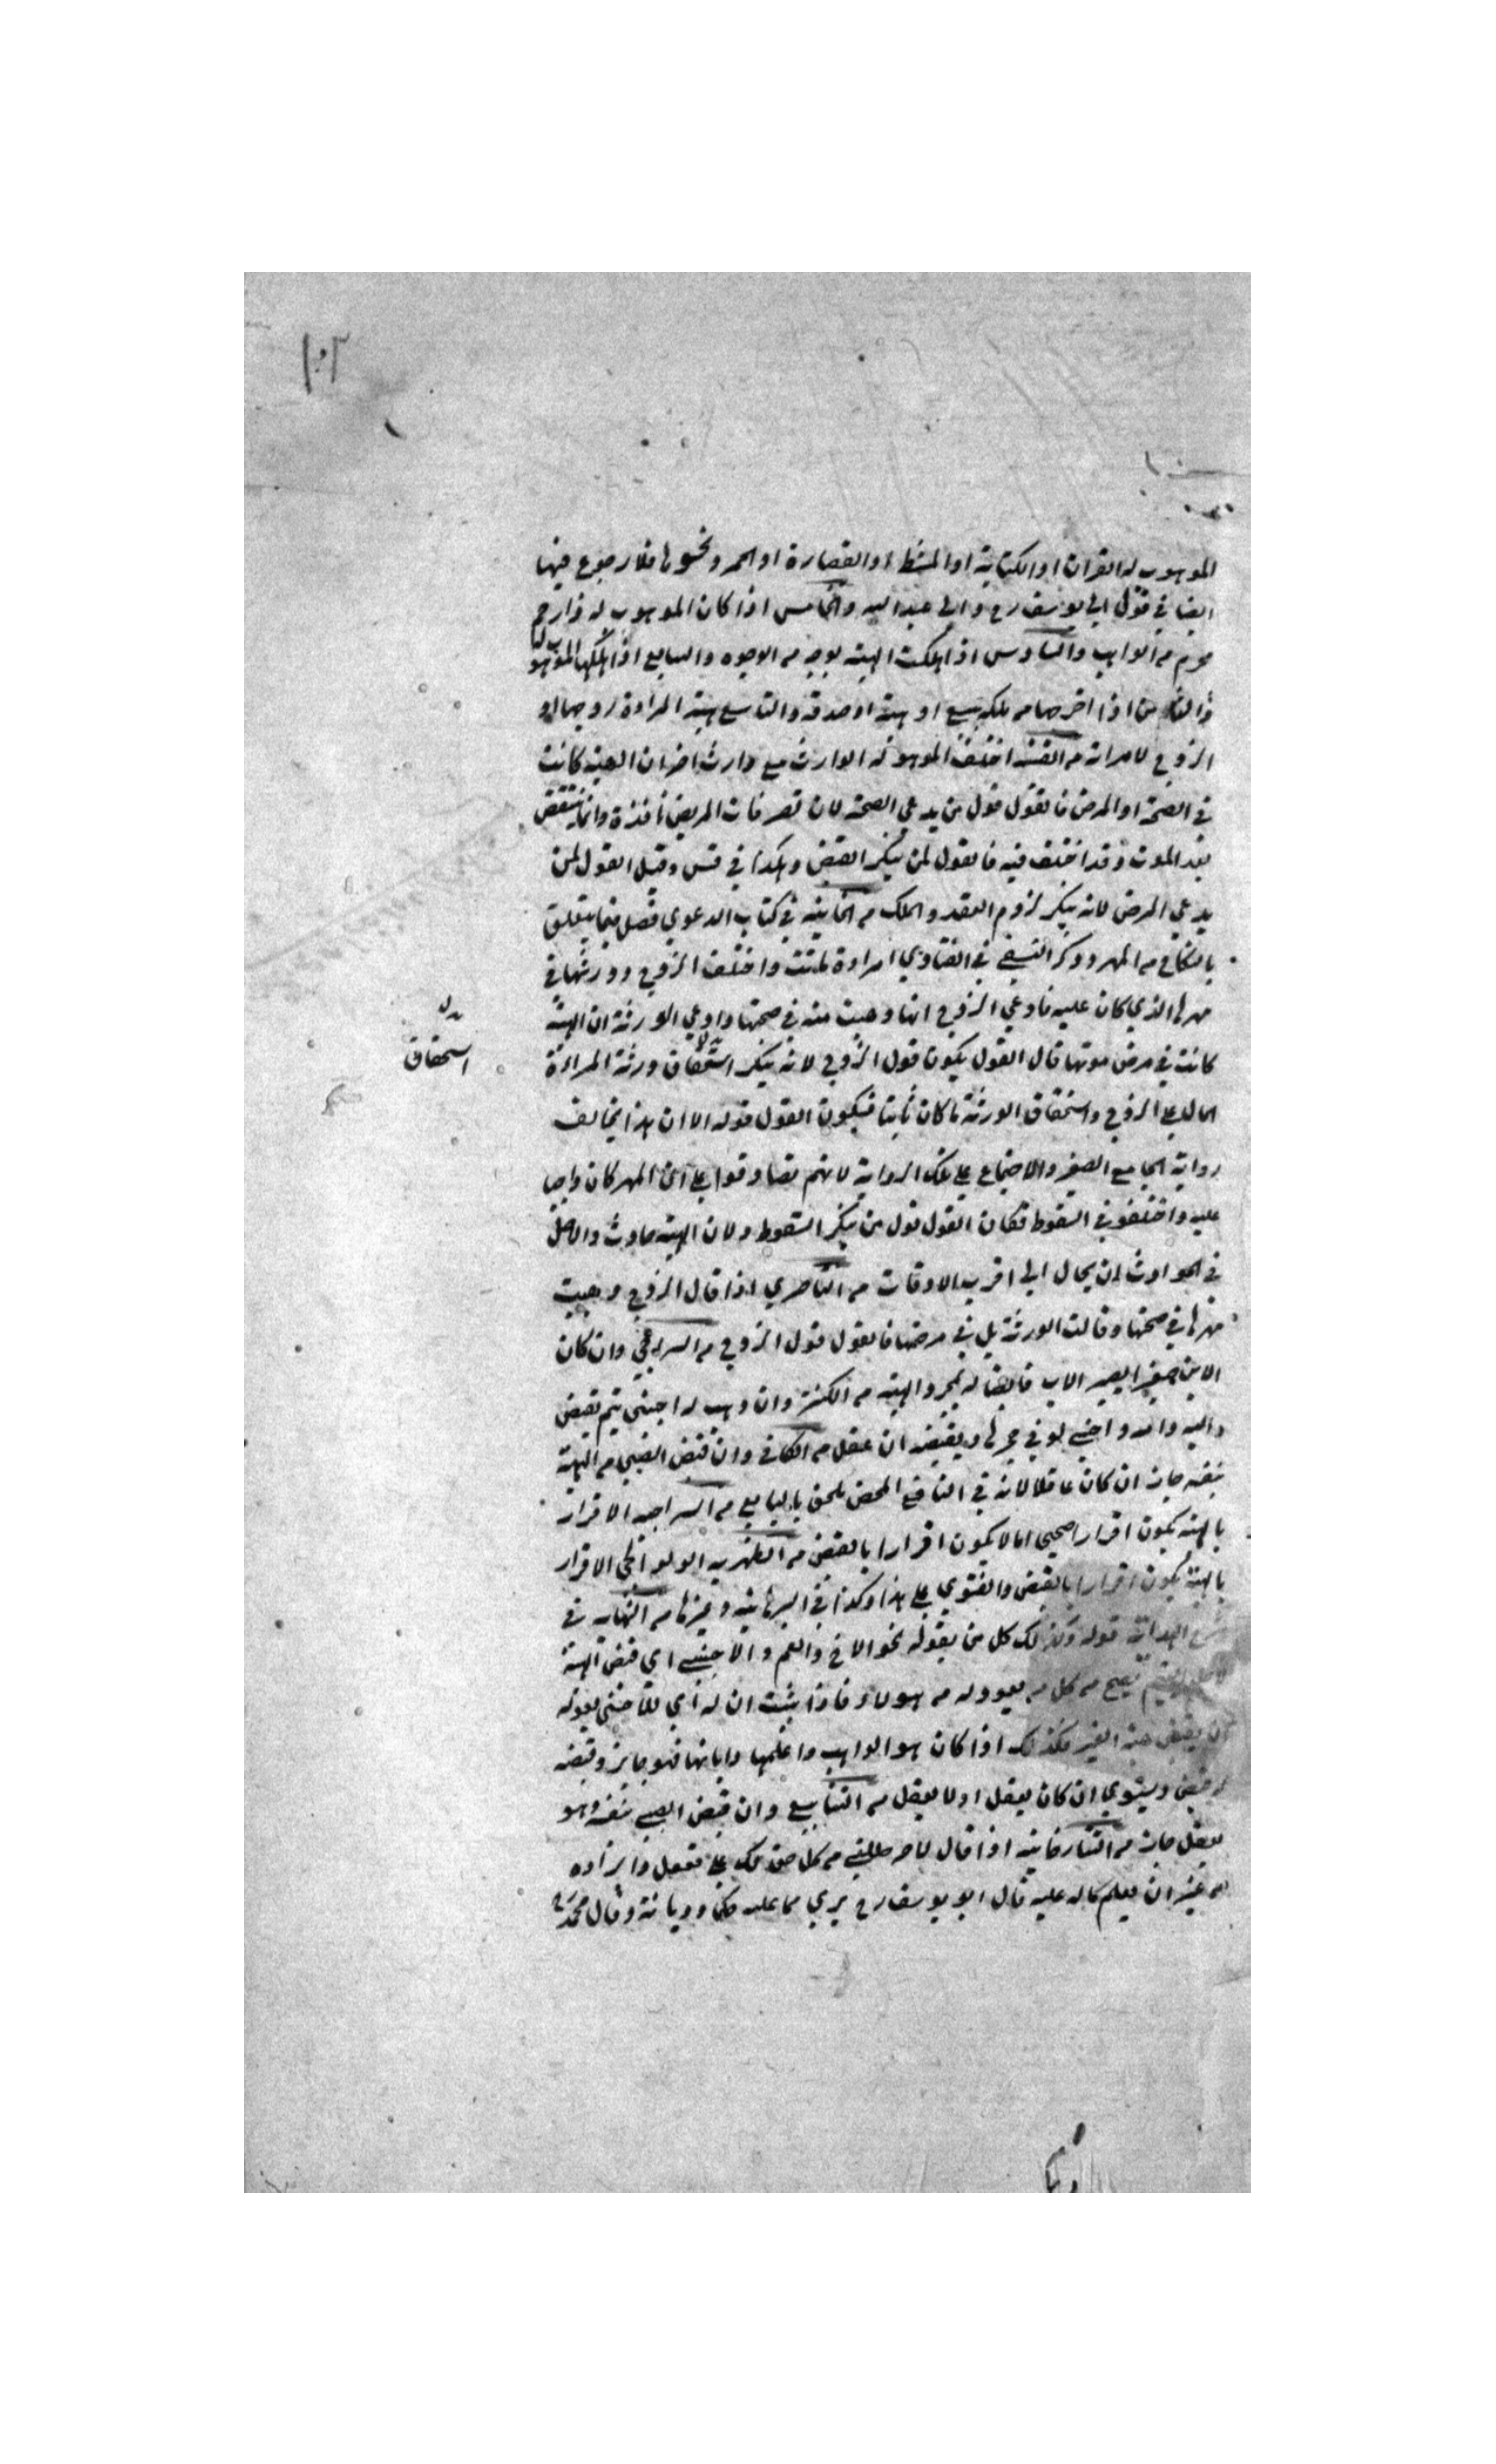 ١٠٣
الموهوب له القران او الكتابة او المشط او القصارة او الحمر ونحوها فلا رجوع فيها
ايضا في قول ابي يوسف رح وابي عبد الله والخامس اذا كان الموهوب له ذا رحم
محرم من الواهب والسادس اذا هلكت الهبة بوجه من الوجوه والسابع اذا اهلكها الموهوب لها
والثامن اذا اخرجها من ملكه ببيع او هبة او صدقة والتاسع هبة المراءة زوجها او
الزوج لامراته من القنية اختلف الموهوب له الوارث مع وارث اخر ان الهبة كانت
في الصحة او المرض فالقول قول من يدعي الصحة لان تصرفات المريض نافذة وانما ينتقض
بعد الموت وقد اختلف فيه فالقول لمن ينكر القبض وهكذا في قس وقيل القول لمن
يدعي المرض لانه ينكر لزوم العقد والملك من الخانية في كتاب الدعوي فصل فيما يتعلق
بالنكاح من المهر وذكر النسفي في الفتاوي امراءة ماتت واختلف الزوج وورثتها في
مهرها الذي كان عليه فادعي الزوج انها وهبت منه في صحتها وادعي الورثة ان الهبة
كانت في مرض موتها قال القول يكون قول الزوج لانه ينكر استحقاق ورثة المراءة
استحقاق
المال على الزوج واستحقاق الورثة ما كان ثابتا فيكون القول قوله الا ان هذا يخالف
رواية الجامع الصغير والاجتماع على تلك الرواية لانهم تصادقوا على ان المهر كان واجبا
عليه واختلفوا في السقوط فكان القول قول من ينكر السقوط ولان الهبة حادث والاصل
في الحوادث ان يحال الى اقرب الاوقات من الناصري اذا قال الزوج وهبت
مهرها في صحتها وقالت الورثة بل في مرضها فالقول قول الزوج من السراجي وان كان
الابن صغيرا يصير الاب قابضا له بمجرد الهبة من الكنز وان وهب له اجنبي يتم بقبض
وليه وامه واجنبي لو في حجرها وبقبضه ان عقل من الكافي وان قبض الصبي من الهبة
بنفسه جاز ان كان عاقلا لانه في النافع المحض ملحق بالبالغ من السراجيه الاقرار
بالهبة يكون اقرارا صحيحا اما لا يكون اقرارا بالقبض من الظهيرية الولوالجي الاقرار
بالهبة يكون اقرارا بالقبض والفتوي على هذا وكذا في البرهانية وغيرها من النهاية في
شرح الهداية قوله وكذلك كل من يعوله نحو الاخ والعم والاجنبي اي قبض الهبة
لاجل اليتيم يصح من كل من يعوله من هولاء فاذا ثبت ان له اي للاجنبي يعوله
ان يقبض هبة الغير فكذلك اذا كان هو الواهب واعلمها وابانها فهو جايز وقبضه
له قبض ويستوي ان كان يعقل او لا يعقل من الينابيع وان قبض الصبي بنفسه وهو
يعقل جاز من التتارخانية اذا قال لاخر حللني من كل حق لك علي ففعل وابراءه
من غير ان يعلم ماله عليه قال ابو يوسف رح بري مما عليه حكما وديانة وقال محمد رح